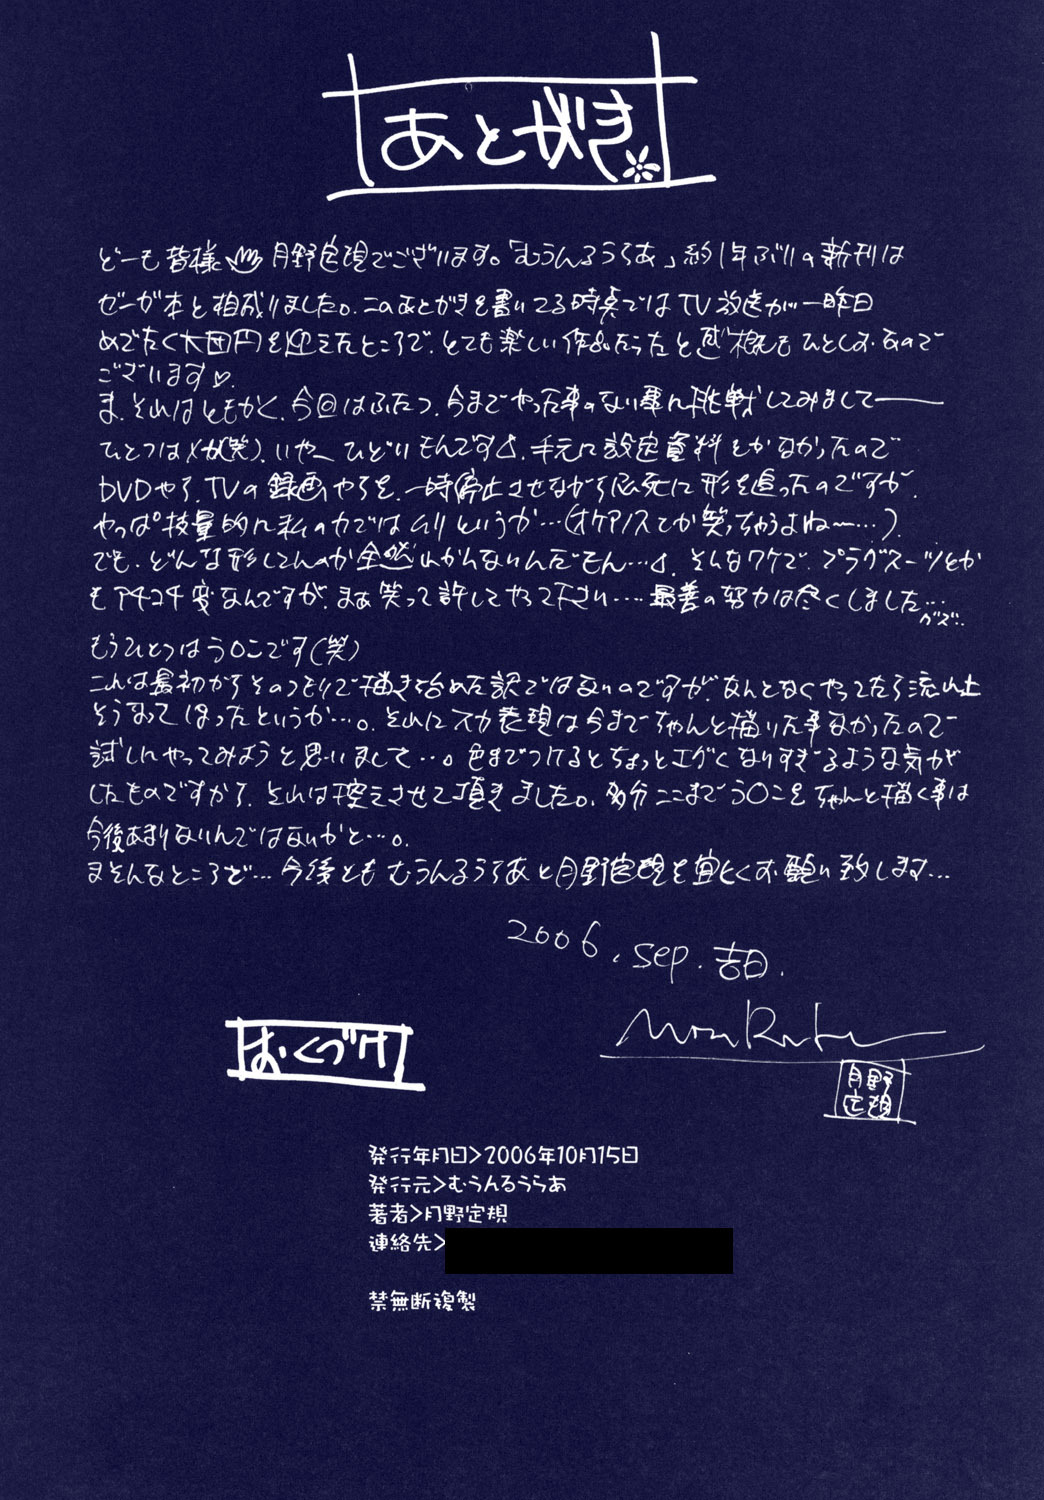 あとがき
どーも皆様 月野定規でございます。「むうんるうらあ」約1年ぶりの新刊は
ゼーガ本と相成りました。このあとがきを書いてる時点ではTV放送が一昨日
めでたく大団円を迎えたところで、とても楽しい作品だったと感慨もひとしおなので
ございます♡。
ま、それはともかく、今回はふたつ、今までやった事のない事に挑戦してみまして――
ひとつはメカ(笑)、いやーひどいもんです、手元に設定資料とかなかったので
DVDやら、TVの録画やらを、一時停止させながら必死に形を追ったのですが、
やっぱ技量的に私の力ではムリというか…(オケアノスとか笑っちゃうよね〜…?)
でも、どんな形してんのか全然わかんないんだもん…、そんなワケで、プラグスーツとか
もアチコチ変なんですが、まぁ笑って許してやって下さい…最善の努力は尽くしました…
グズ..
もうひとつはう○こです(笑)
これは最初からそのつもりで描き始めた訳ではないのですが、なんとなくやってたら流れ上
そうなってしまったというか…。それにスカ表現は今までちゃんと描いた事なかったので
試しにやってみようと思いまして…。色までつけるとちょっとエグくなりすぎるような気が
したものですから、それは控えさせて頂きました。多分ここまでう○こをちゃんと描く事は
今後あまりないんではないかと…。
まそんなところで…今後ともむうんるうらあと月野定規を宜しくお願い致します…
2006. sep. 吉日.
月野
定規
おくづけ
発行年月日>2006年10月15日
発行元>むうんるうらあ
著者>月野定規
連絡先>
禁無断複製